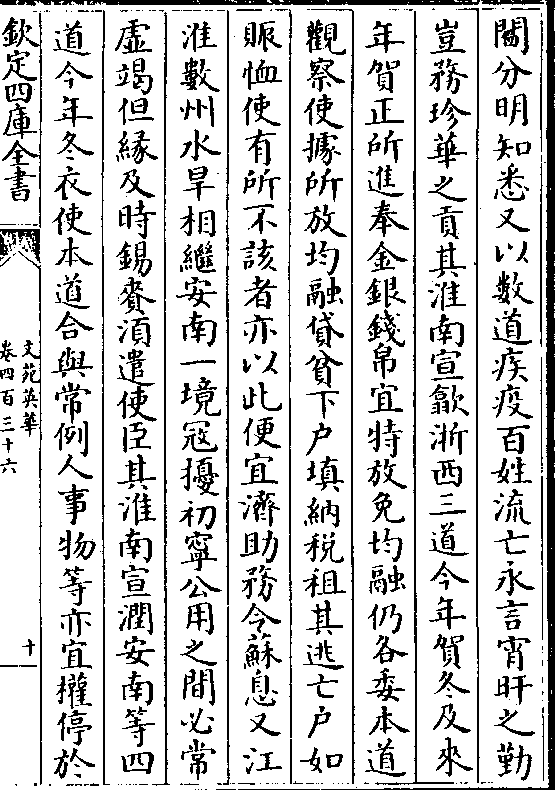 闗分明知悉又以数道疾疫百姓流亡永言宵旰之勤
豈務珍華之貢其淮南宣歙浙西三道今年賀冬及來
年賀正所進奉金銀錢帛宜特放免均融仍各委本道
觀察使據所放均融貸貧下户填納税租其逃亡户如
賑恤使有所不該者亦以此便宜濟助務令蘇息又江
淮數州水旱相繼安南一境冦擾初寧公用之間必常
虚竭但緣及時錫賚湏遣使臣其淮南宣潤安南等四
道今年冬衣使本道合與常例人事物等亦宜權停於
欽定四庫全書
文苑英華
卷四百三十六
十